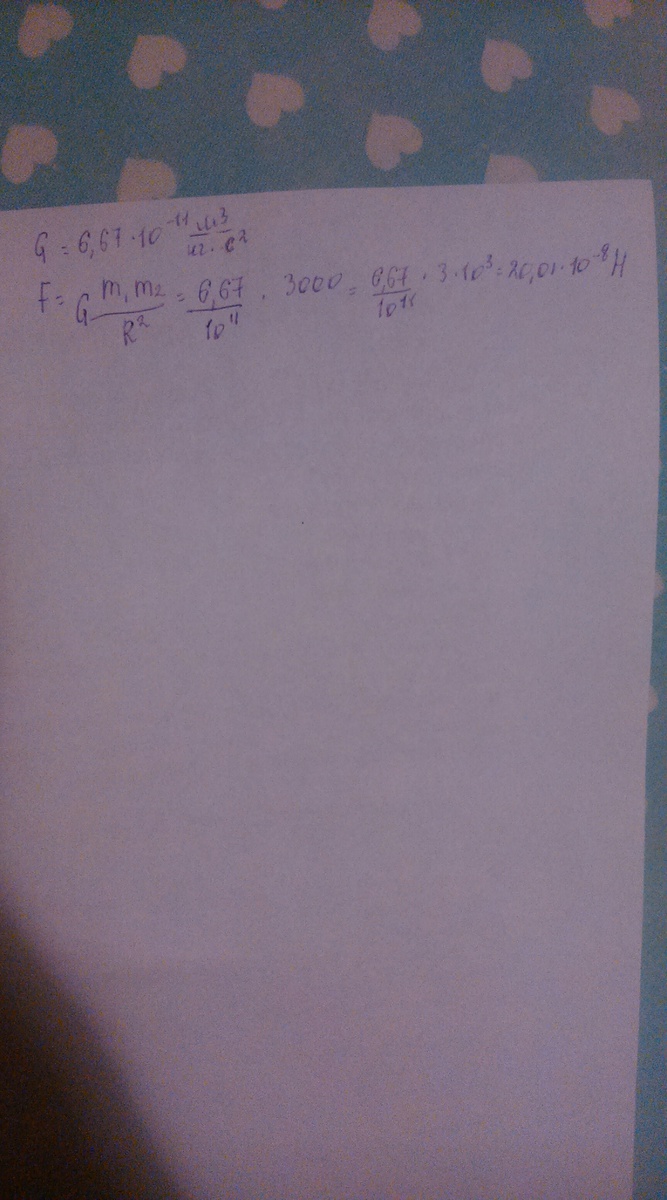 G = 6,67 · 10^-11 м^3/кг · с^2
F = G m1 m2/R^2 = 6,67/10^11 · 3000 = 6,67/10^11 · 3 · 10^3 = 20,01 · 10^-8 Н